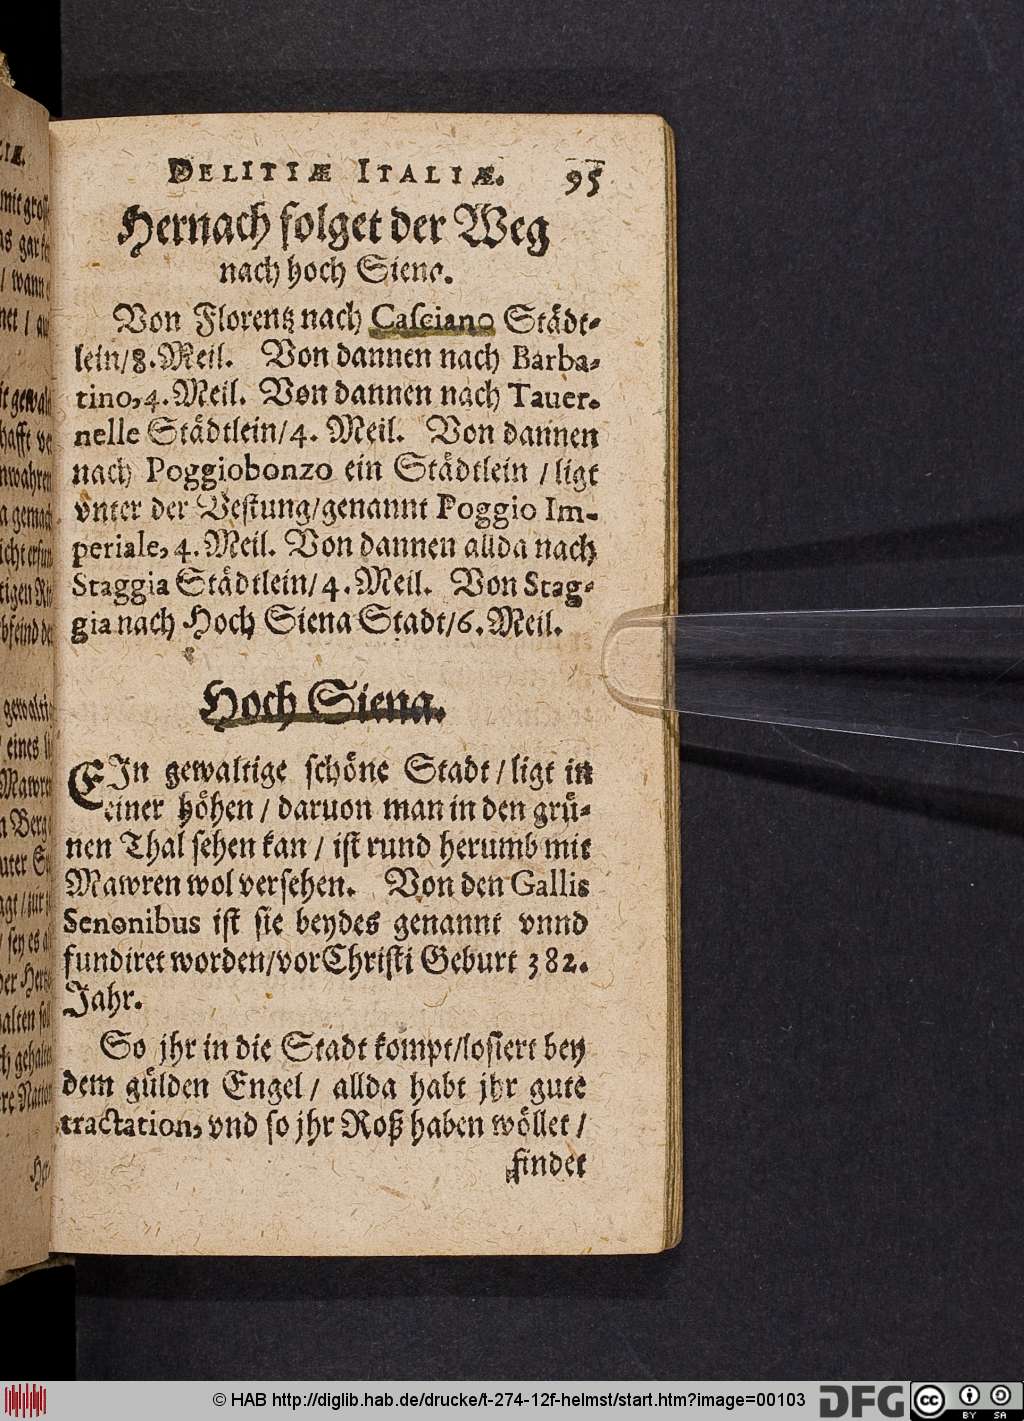 DELITIÆ ITALIÆ. 95
Hernach folget der Weg
nach hoch Siena.
Von Florentz nach Caſciano Städt-
lein/8. Meil. Von dannen nach Barba-
tino, 4. Meil. Von dannen nach Tauer-
nelle Städtlein/4. Meil. Von dannen
nach Poggiobonzo ein Städtlein / ligt
vnter der Veſtung/genannt Poggio Im-
periale, 4. Meil. Von dannen allda nach
Staggia Städtlein/ 4. Meil. Von Stag-
gia nach Hoch Siena Stadt/6. Meil.
Hoch Siena.
EIn gewaltige ſchöne Stadt / ligt in
einer höhen / daruon man in den grü-
nen Thal ſehen kan / iſt rund herumb mit
Mawren wol verſehen. Von den Gallis
Senonibus iſt ſie beydes genannt vnnd
fundiret worden/vor Chriſti Geburt 382.
Jahr.
So jhr in die Stadt kompt/loſiert bey
dem gülden Engel / allda habt jhr gute
tractation, vnd ſo jhr Roß haben wöllet /
findet
© HAB http://diglib.hab.de/drucke/t-274-12f-helmst/start.htm?image=00103 DFG cc BY SA